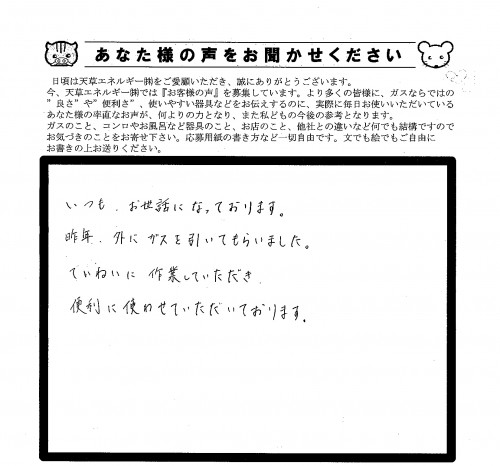 あなた様の声をお聞かせください
日頃は天草エネルギー㈱をご愛顧いただき、誠にありがとうございます。
今、天草エネルギー㈱では『お客様の声』を募集しています。より多くの皆様に、ガスならではの
”良さ”や”便利さ”、使いやすい器具などをお伝えするのに、実際に毎日お使いいただいている
あなた様の率直なお声が、何よりの力となり、また私どもの今後の参考となります。
ガスのこと、コンロやお風呂など器具のこと、お店のこと、他社との違いなど何でも結構ですので
お気づきのことをお寄せ下さい。応募用紙の書き方など一切自由です。文でも絵でもご自由に
お書きの上お送りください。
いつも、お世話になっております。
昨年、外にガスを引いてもらいました。
ていねいに作業していただき
便利に使わせていただいております。